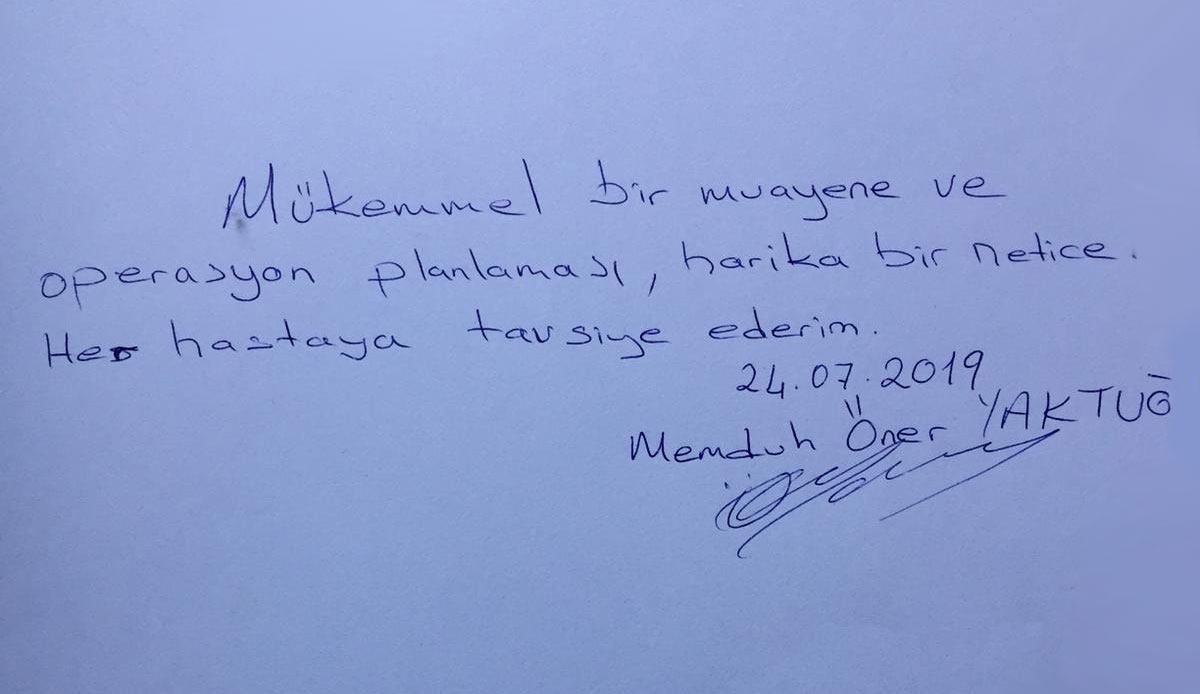 Mükemmel bir muayene ve
operasyon planlaması, harika bir netice.
Her hastaya tavsiye ederim.
24.07.2019
Memduh Öner YAKTUĞ